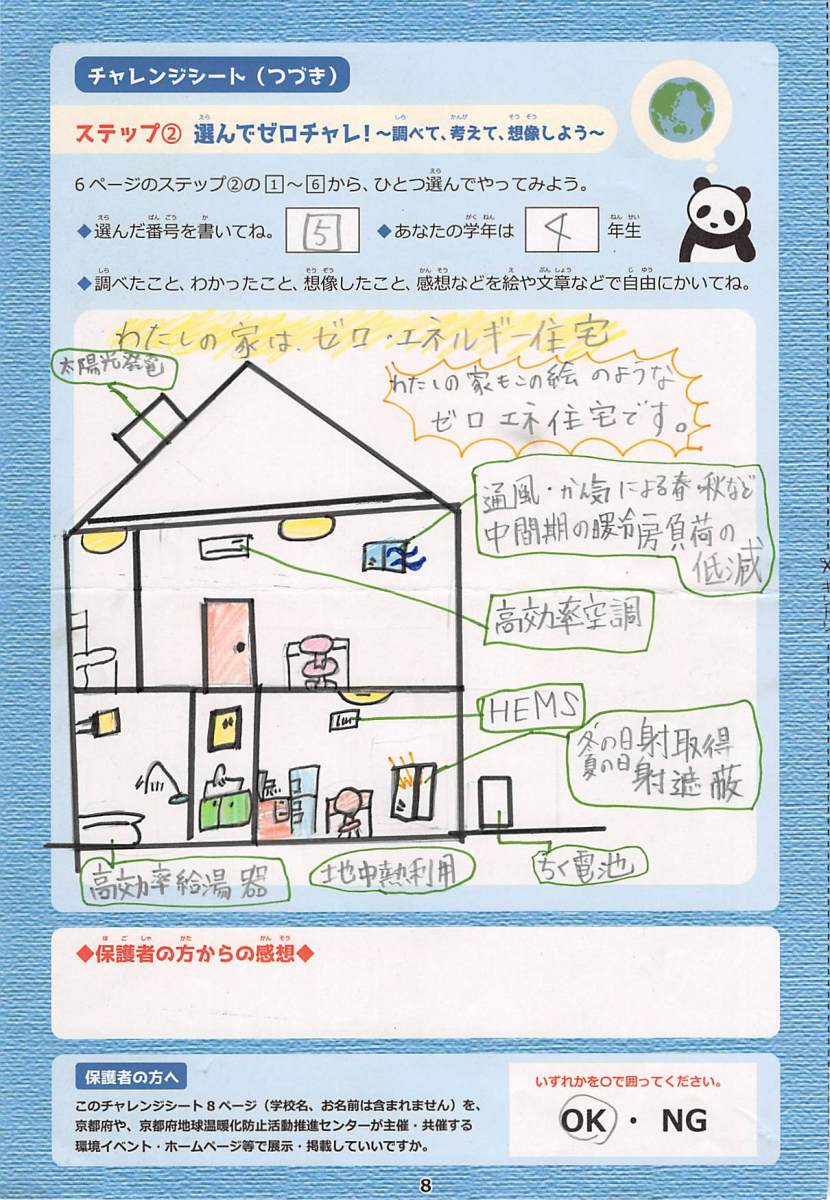 チャレンジシート（つづき）
ステップ② 選んでゼロチャレ！～調べて、考えて、想像しよう～
6ページのステップ②の1～6から、ひとつ選んでやってみよう。
◆選んだ番号を書いてね。 5 ◆あなたの学年は 4 年生
◆調べたこと、わかったこと、想像したこと、感想などを絵や文章などで自由にかいてね。
わたしの家は、ゼロ・エネルギー住宅
太陽光発電
わたしの家もこの絵のような
ゼロエネ住宅です。
通風・かん気による春・秋など
中間期の暖冷房負荷の
低減
高効率空調
HEMS
冬の日射取得
夏の日射遮蔽
高効率給湯器
地中熱利用
ちく電池
◆保護者の方からの感想◆
保護者の方へ
このチャレンジシート8ページ（学校名、お名前は含まれません）を、
京都府や、京都府地球温暖化防止活動推進センターが主催・共催する
環境イベント・ホームページ等で展示・掲載していいですか。
いずれかを○で囲ってください。
OK・NG
8